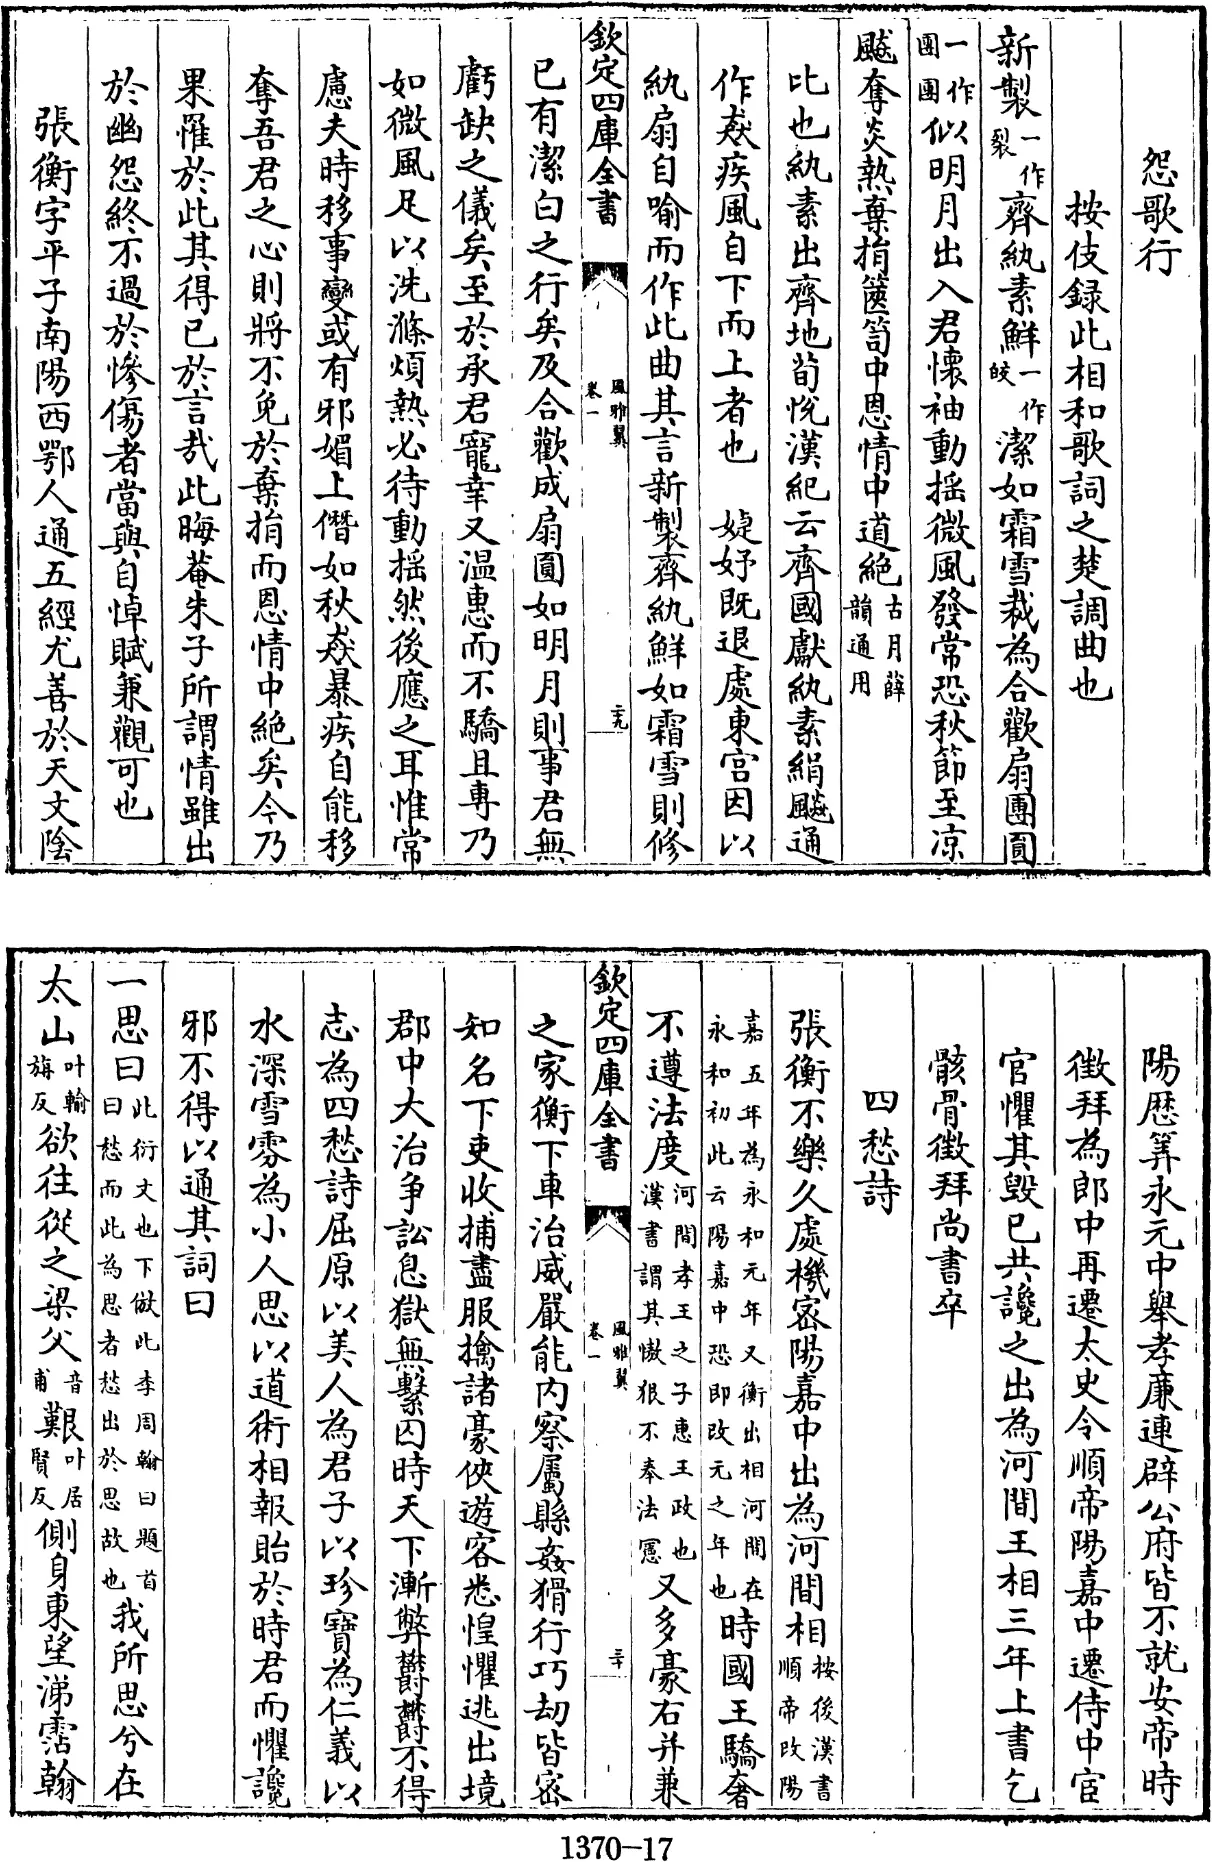 怨歌行
按伎録此相和歌詞之楚調曲也
新製一作裂齊紈素鮮一作皎潔如霜雪裁為合歡扇團圓
一作團團似明月出入君懷袖動揺微風發常恐秋節至凉
飈奪炎熱棄捐篋笥中恩情中道絶古月薛韻通用
比也紈素出齊地荀悦漢紀云齊國獻紈素絹飈通
作猋疾風自下而上者也　婕妤既退處東宫因以
紈扇自喻而作此曲其言新製齊紈鮮如霜雪則修
欽定四庫全書
風雅翼
卷一
二九
已有潔白之行矣及合歡成扇圓如明月則事君無
虧缺之儀矣至於承君寵幸又温惠而不驕且専乃
如微風足以洗滌煩熱必待動揺然後應之耳惟常
慮夫時移事變或有邪媚上僭如秋猋暴疾自能移
奪吾君之心則將不免於棄捐而恩情中絶矣今乃
果罹於此其得已於言哉此晦菴朱子所謂情雖出
於幽怨終不過於惨傷者當與自悼賦兼觀可也
張衡字平子南陽西鄂人通五經尤善於天文陰
陽厯筭永元中舉孝廉連辟公府皆不就安帝時
徴拜為郎中再遷太史令順帝陽嘉中遷侍中宦
官懼其毁已共讒之出為河間王相三年上書乞
骸骨徴拜尚書卒
四愁詩
張衡不樂久處機宻陽嘉中出為河間相按後漢書順帝改陽
嘉五年為永和元年又衡出相河間在永和初此云陽嘉中恐即改元之年也時國王驕奢
不遵法度河間孝王之子惠王政也漢書謂其慠狠不奉法憲又多豪右并兼
欽定四庫全書
風雅翼
卷一
三十
之家衡下車治威嚴能内察屬縣姦猾行巧刼皆宻
知名下吏收捕盡服擒諸豪俠遊客悉惶懼逃出境
郡中大治争訟息獄無繫囚時天下漸弊欝欝不得
志為四愁詩屈原以美人為君子以珍寳為仁義以
水深雪雰為小人思以道術相報貽於時君而懼讒
邪不得以通其詞曰
一思曰此衍文也下倣此李周翰曰題首曰愁而此為思者愁出於思故也我所思兮在
太山叶輸旃反欲往從之梁父音甫艱叶居賢反側身東望涕霑翰
1370-17